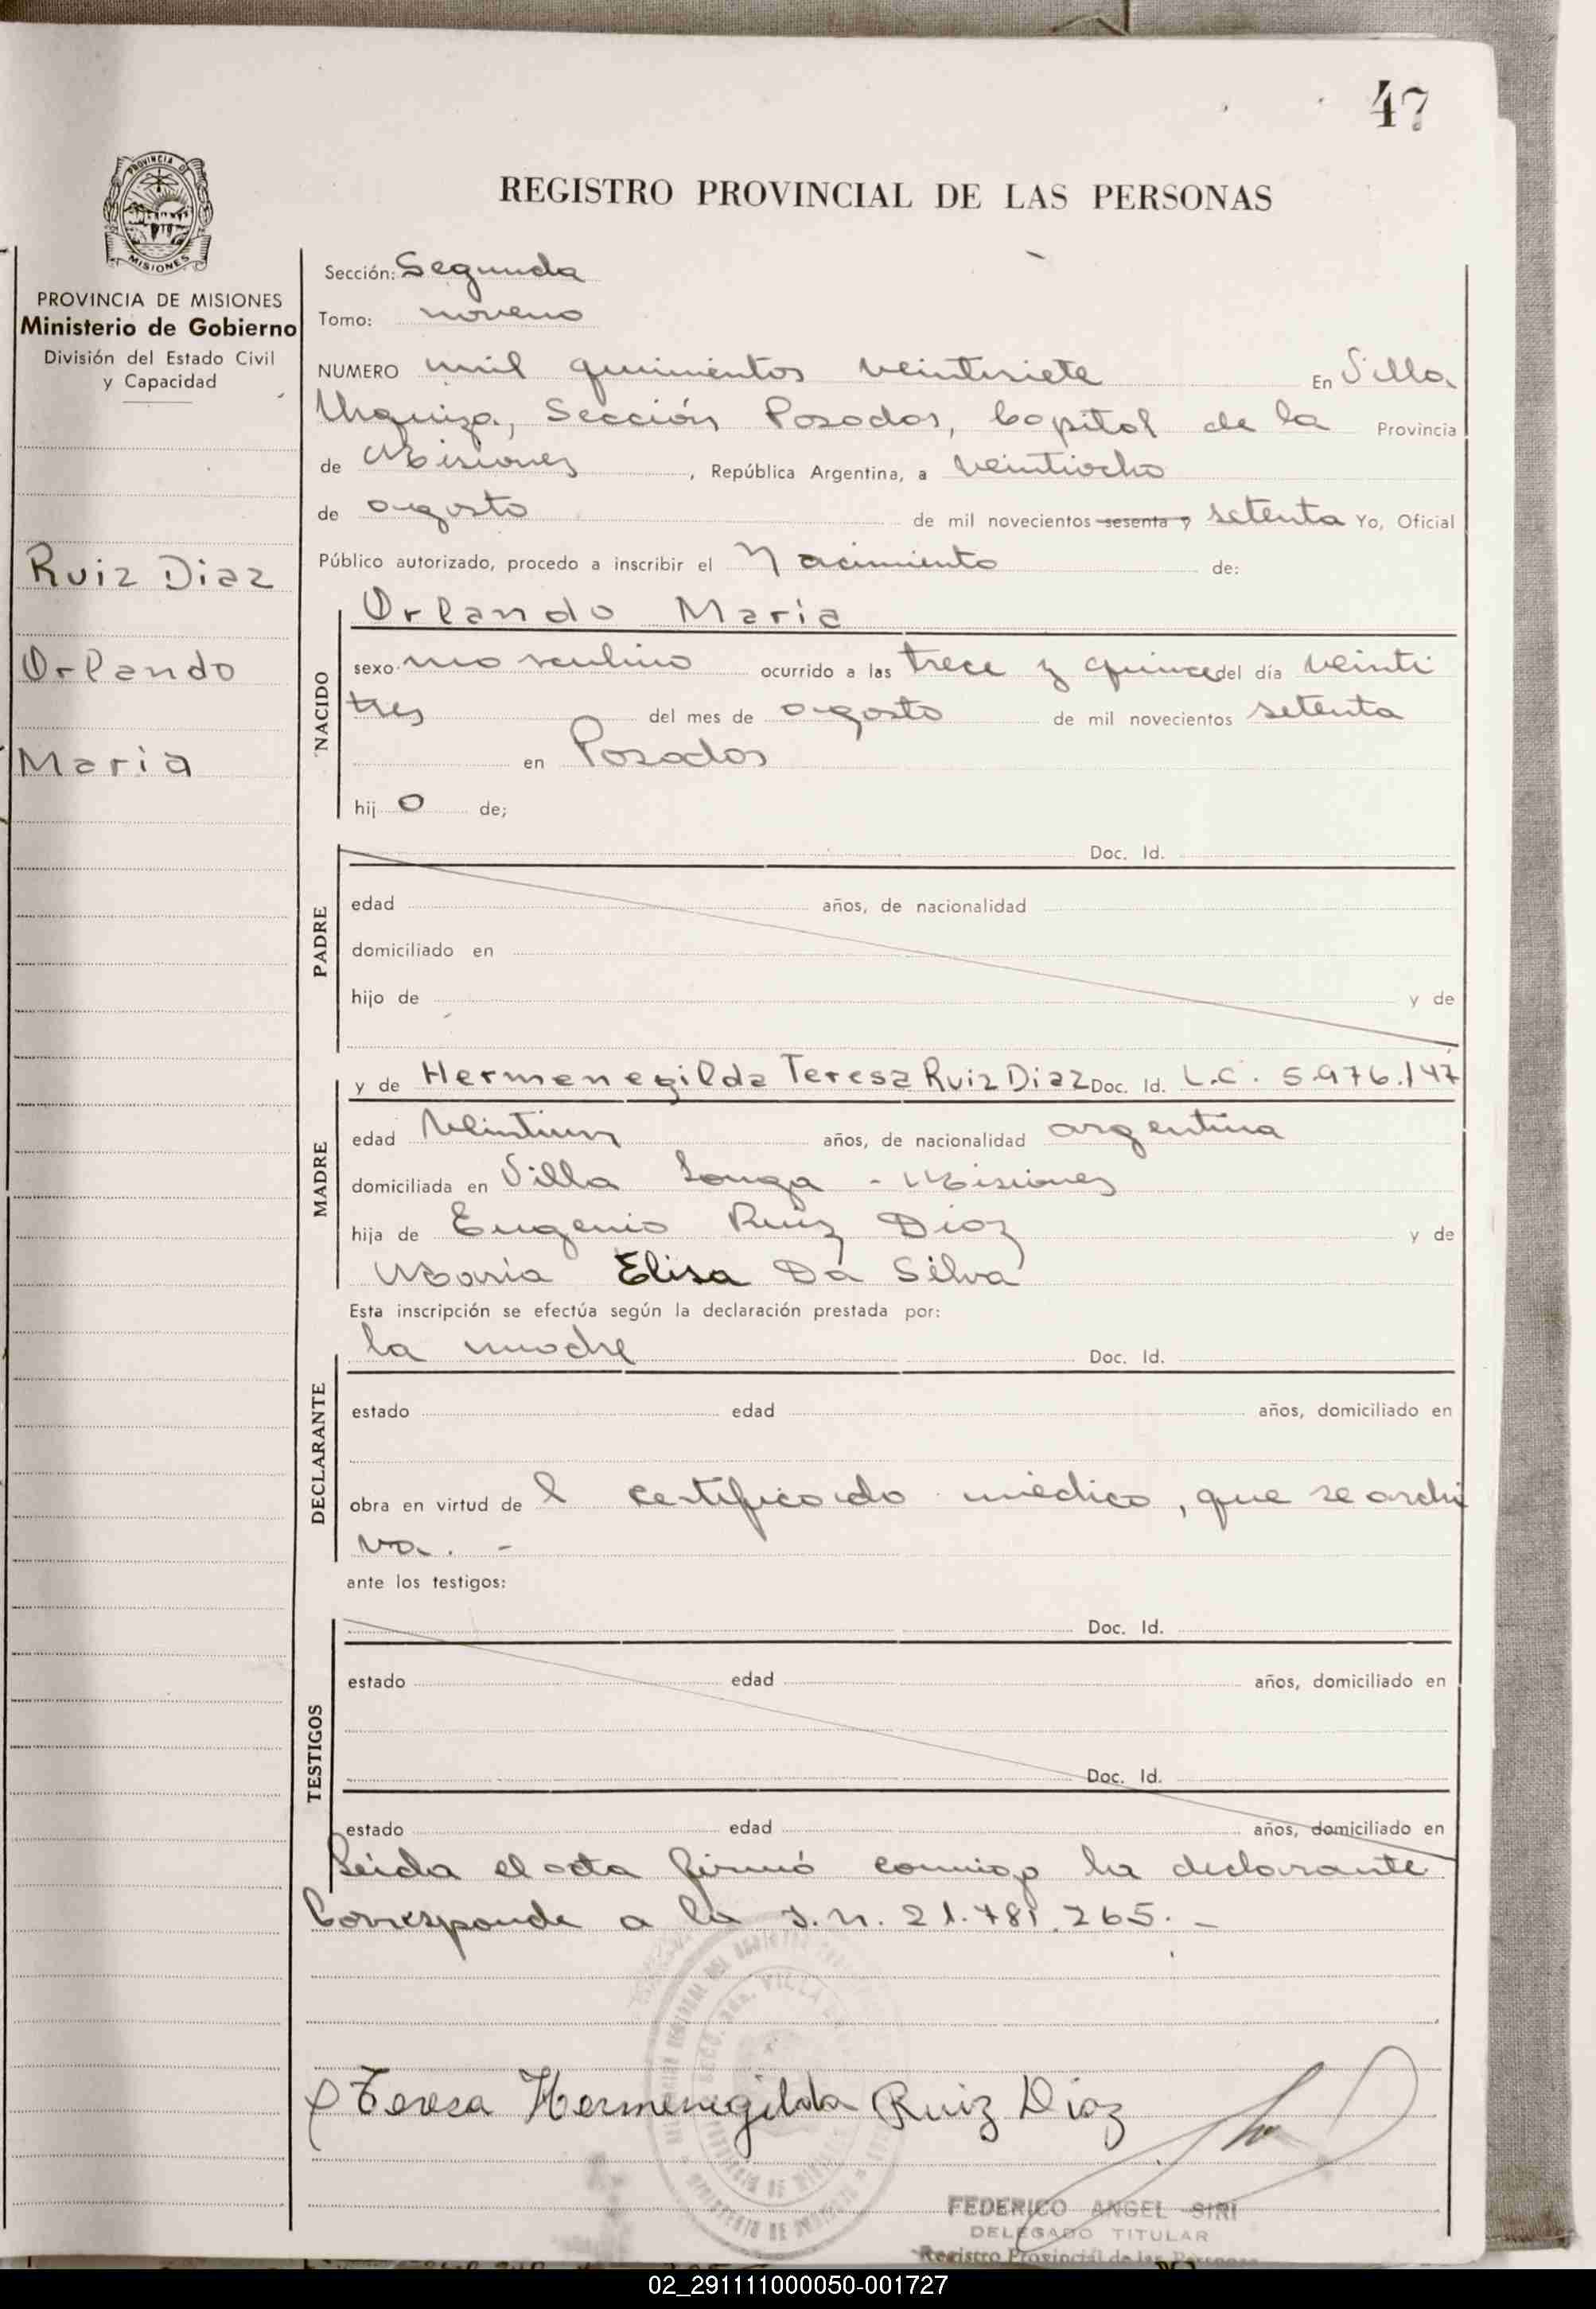 47
REGISTRO PROVINCIAL DE LAS PERSONAS
PROVINCIA DE MISIONES
PROVINCIA DE MISIONES
Ministerio de Gobierno
División del Estado Civil
y Capacidad
Ruiz Diaz
Orlando
Maria
Sección: Segunda
Tomo: noveno
NUMERO mil quinientos veintisiete En Villa
Urquiza, Sección Posadas, Capital de la Provincia
de Misiones, República Argentina, a veintiocho
de agosto de mil novecientos sesenta y setenta Yo, Oficial
Público autorizado, procedo a inscribir el Nacimiento de:
Orlando Maria
NACIDO
sexo masculino ocurrido a las trece y quince del día veinti
tres del mes de agosto de mil novecientos setenta
en Posadas
hij o de;
PADRE
Doc. Id.
edad años, de nacionalidad
domiciliado en
hijo de y de
MADRE
y de Hermenegilda Teresa Ruiz Diaz Doc. Id. L.C. 5.976.147
edad veintiun años, de nacionalidad argentina
domiciliada en Villa Longa - Misiones
hija de Eugenio Ruiz Diaz y de
María Elisa Da Silva
Esta inscripción se efectúa según la declaración prestada por:
DECLARANTE
la madre Doc. Id.
estado edad años, domiciliado en
obra en virtud de l certificado médico, que se archi
va. -
ante los testigos:
TESTIGOS
Doc. Id.
estado edad años, domiciliado en
Doc. Id.
estado edad años, domiciliado en
Leída el acta firmó conmigo la declarante
Corresponde a la I.N. 21.781.265. -
Teresa Hermenegilda Ruiz Diaz
FEDERICO ANGEL SIRI
DELEGADO TITULAR
Registro Provincial de las Personas
02_291111000050-001727